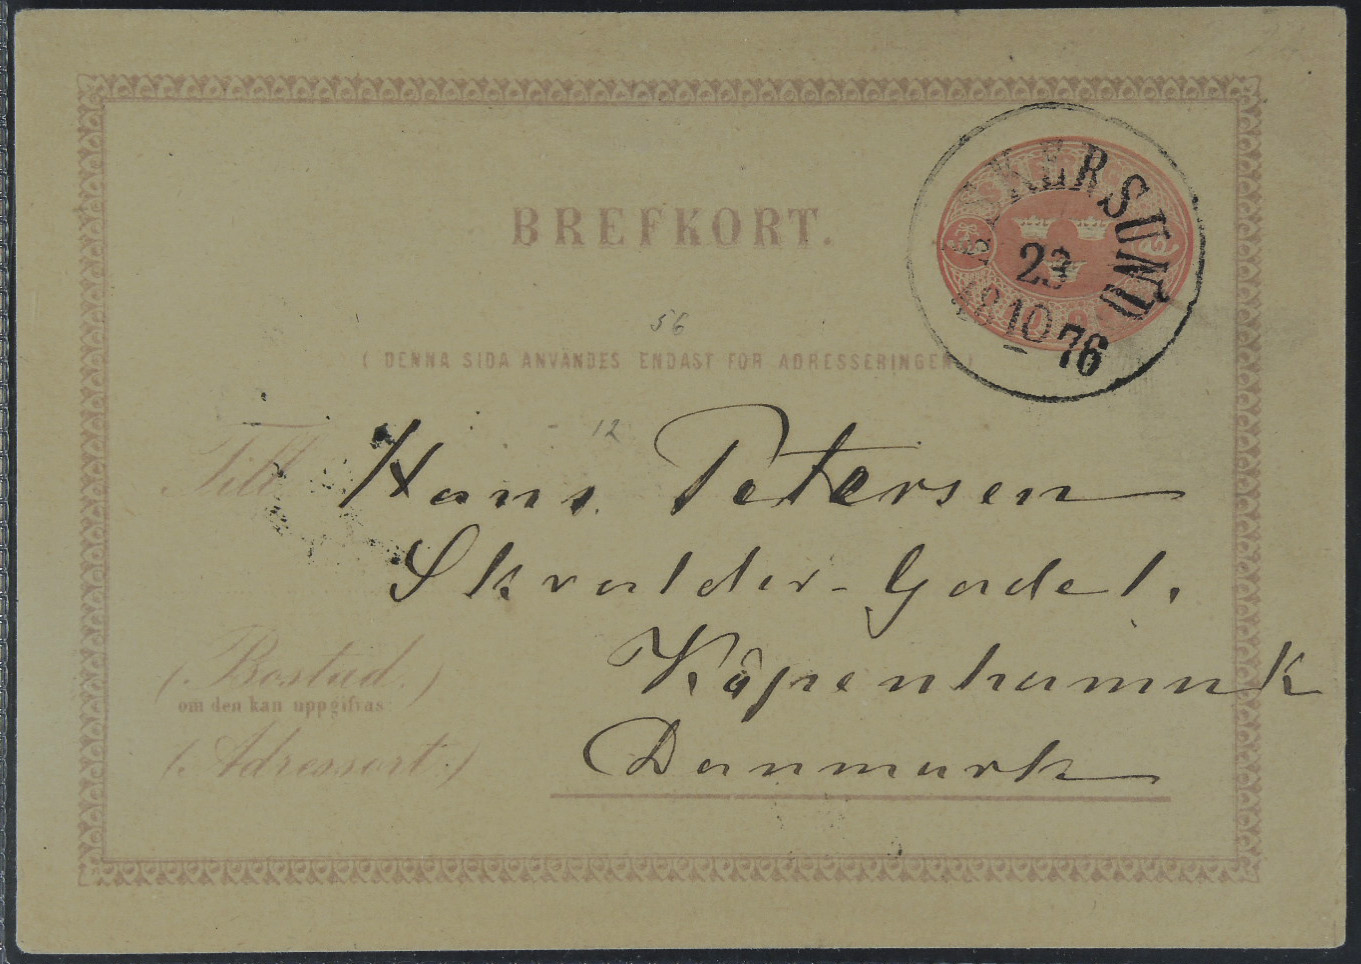 BREFKORT.
ASKERSUND
23
10
1876
56
( DENNA SIDA ANVÄNDES ENDAST FÖR ADRESSERINGEN )
12
Till Hans Petersen
Skvalder-Gade 1.
Köpenhamn K
(Bostad.)
om den kan uppgifvas
(Adressort.) Danmark